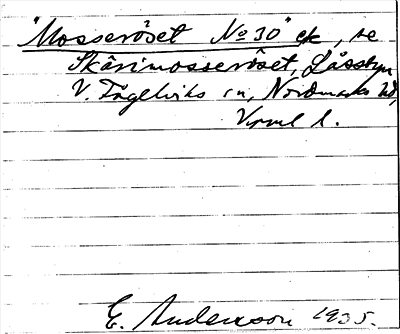 "Mosseröset No 30" etc, se
Skärimosseröset, Låssbyn
V. Fågelviks sn, Nordmarks hd,
Vrml l.
E. Andersson 1935.